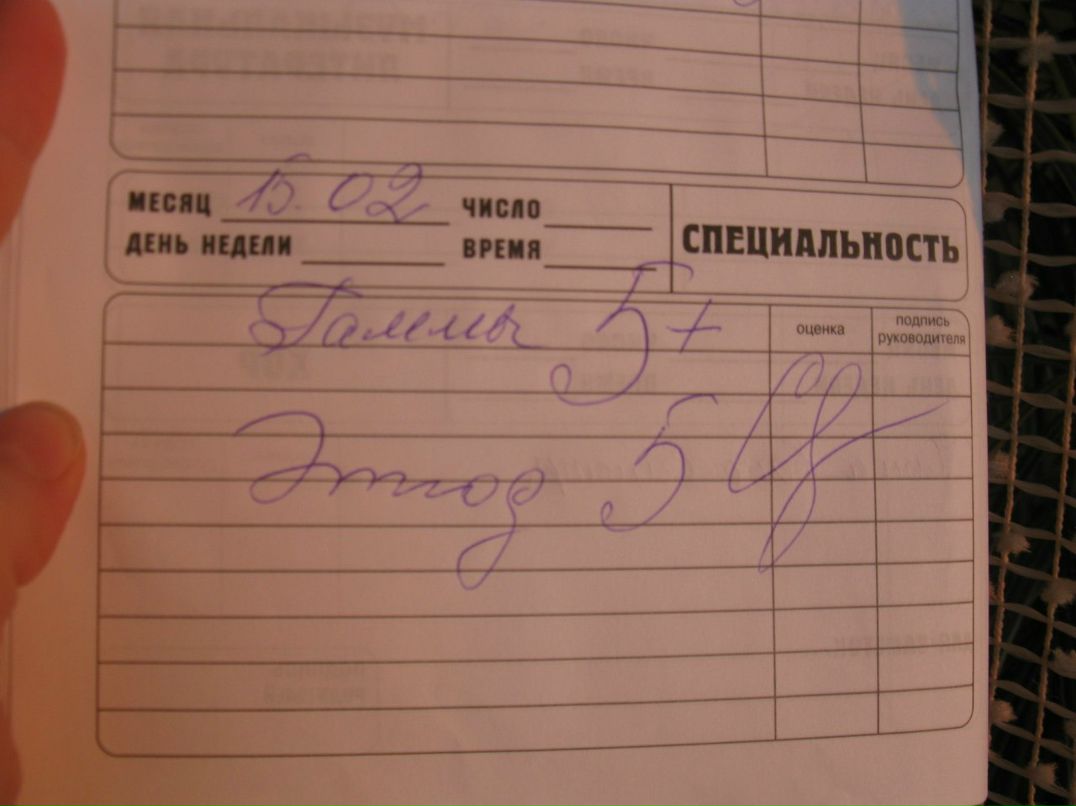 МЕСЯЦ 15.02 ЧИСЛО
ДЕНЬ НЕДЕЛИ ВРЕМЯ
СПЕЦИАЛЬНОСТЬ
оценка
подпись руководителя
Гаммы 5+
Этюд 5